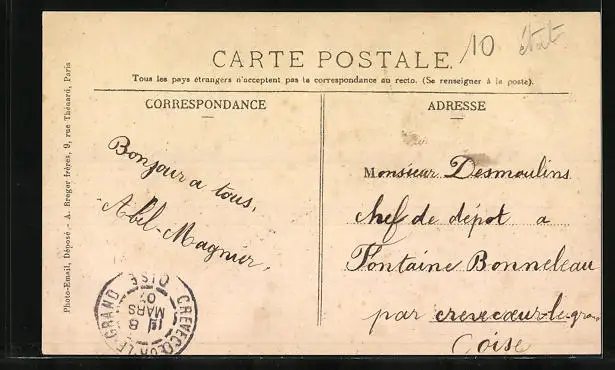 10 état
CARTE POSTALE.
Tous les pays étrangers n'acceptent pas la correspondance au recto. (Se renseigner à la poste).
CORRESPONDANCE
ADRESSE
Bonjour a tous,
Abel-Magnier.
Monsieur Desmoulins
chef de dépot a
Fontaine Bonneleau
par crevecœur-le-gran
Oise
CREVECŒUR-LE-GRAND
OISE
8
MARS
07
Photo-Email, Déposé - A. Breger frères, 9, rue Thénard, Paris